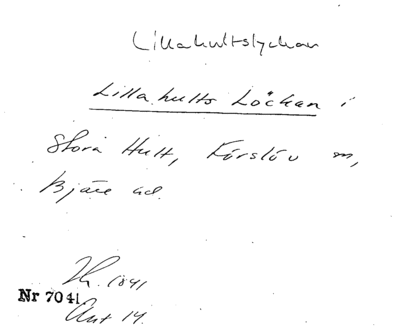 Lillahultslyckan
Lillahults Löckan i
Stora Hult, Förslöv
Bjäre
1841
Nr 7041
Ant 14.